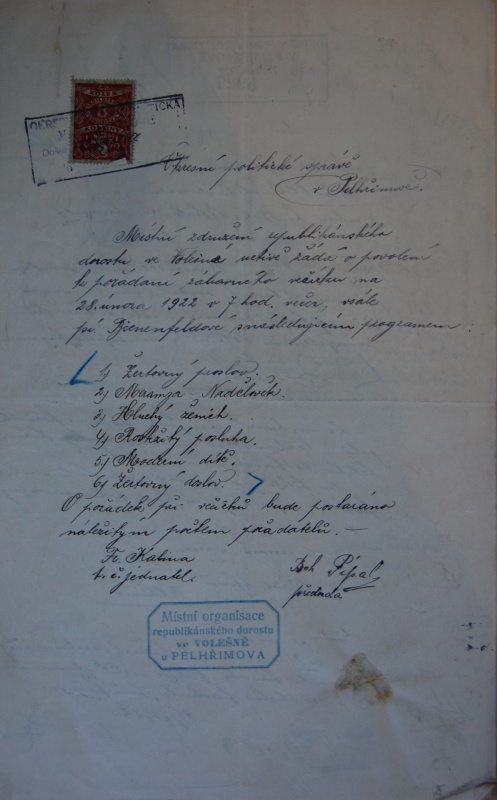 Okresní politické správě
v Pelhřimově.
Místní združení republikánského
dorostu ve Volešně uctivě žádá o povolení
ku pořádání zábavného večírku na
28. února 1922 v 7 hod. večer, v sále
pí Bienenfeldové s následujícím programem:
1) Žertovný proslov.
2) Nadělovek.
3) Hluchý ženich.
4) Roztržitý posluha.
5) Moderní dík.
6) Žertovný doslov.
O pořádek při večírku bude postaráno
náležitým počtem pořadatelů. —
Fr. Kalina
t. č. jednatel.
Boh. Pípal
předseda
Místní organisace
republikánského dorostu
ve VOLEŠNĚ
u PELHŘIMOVA